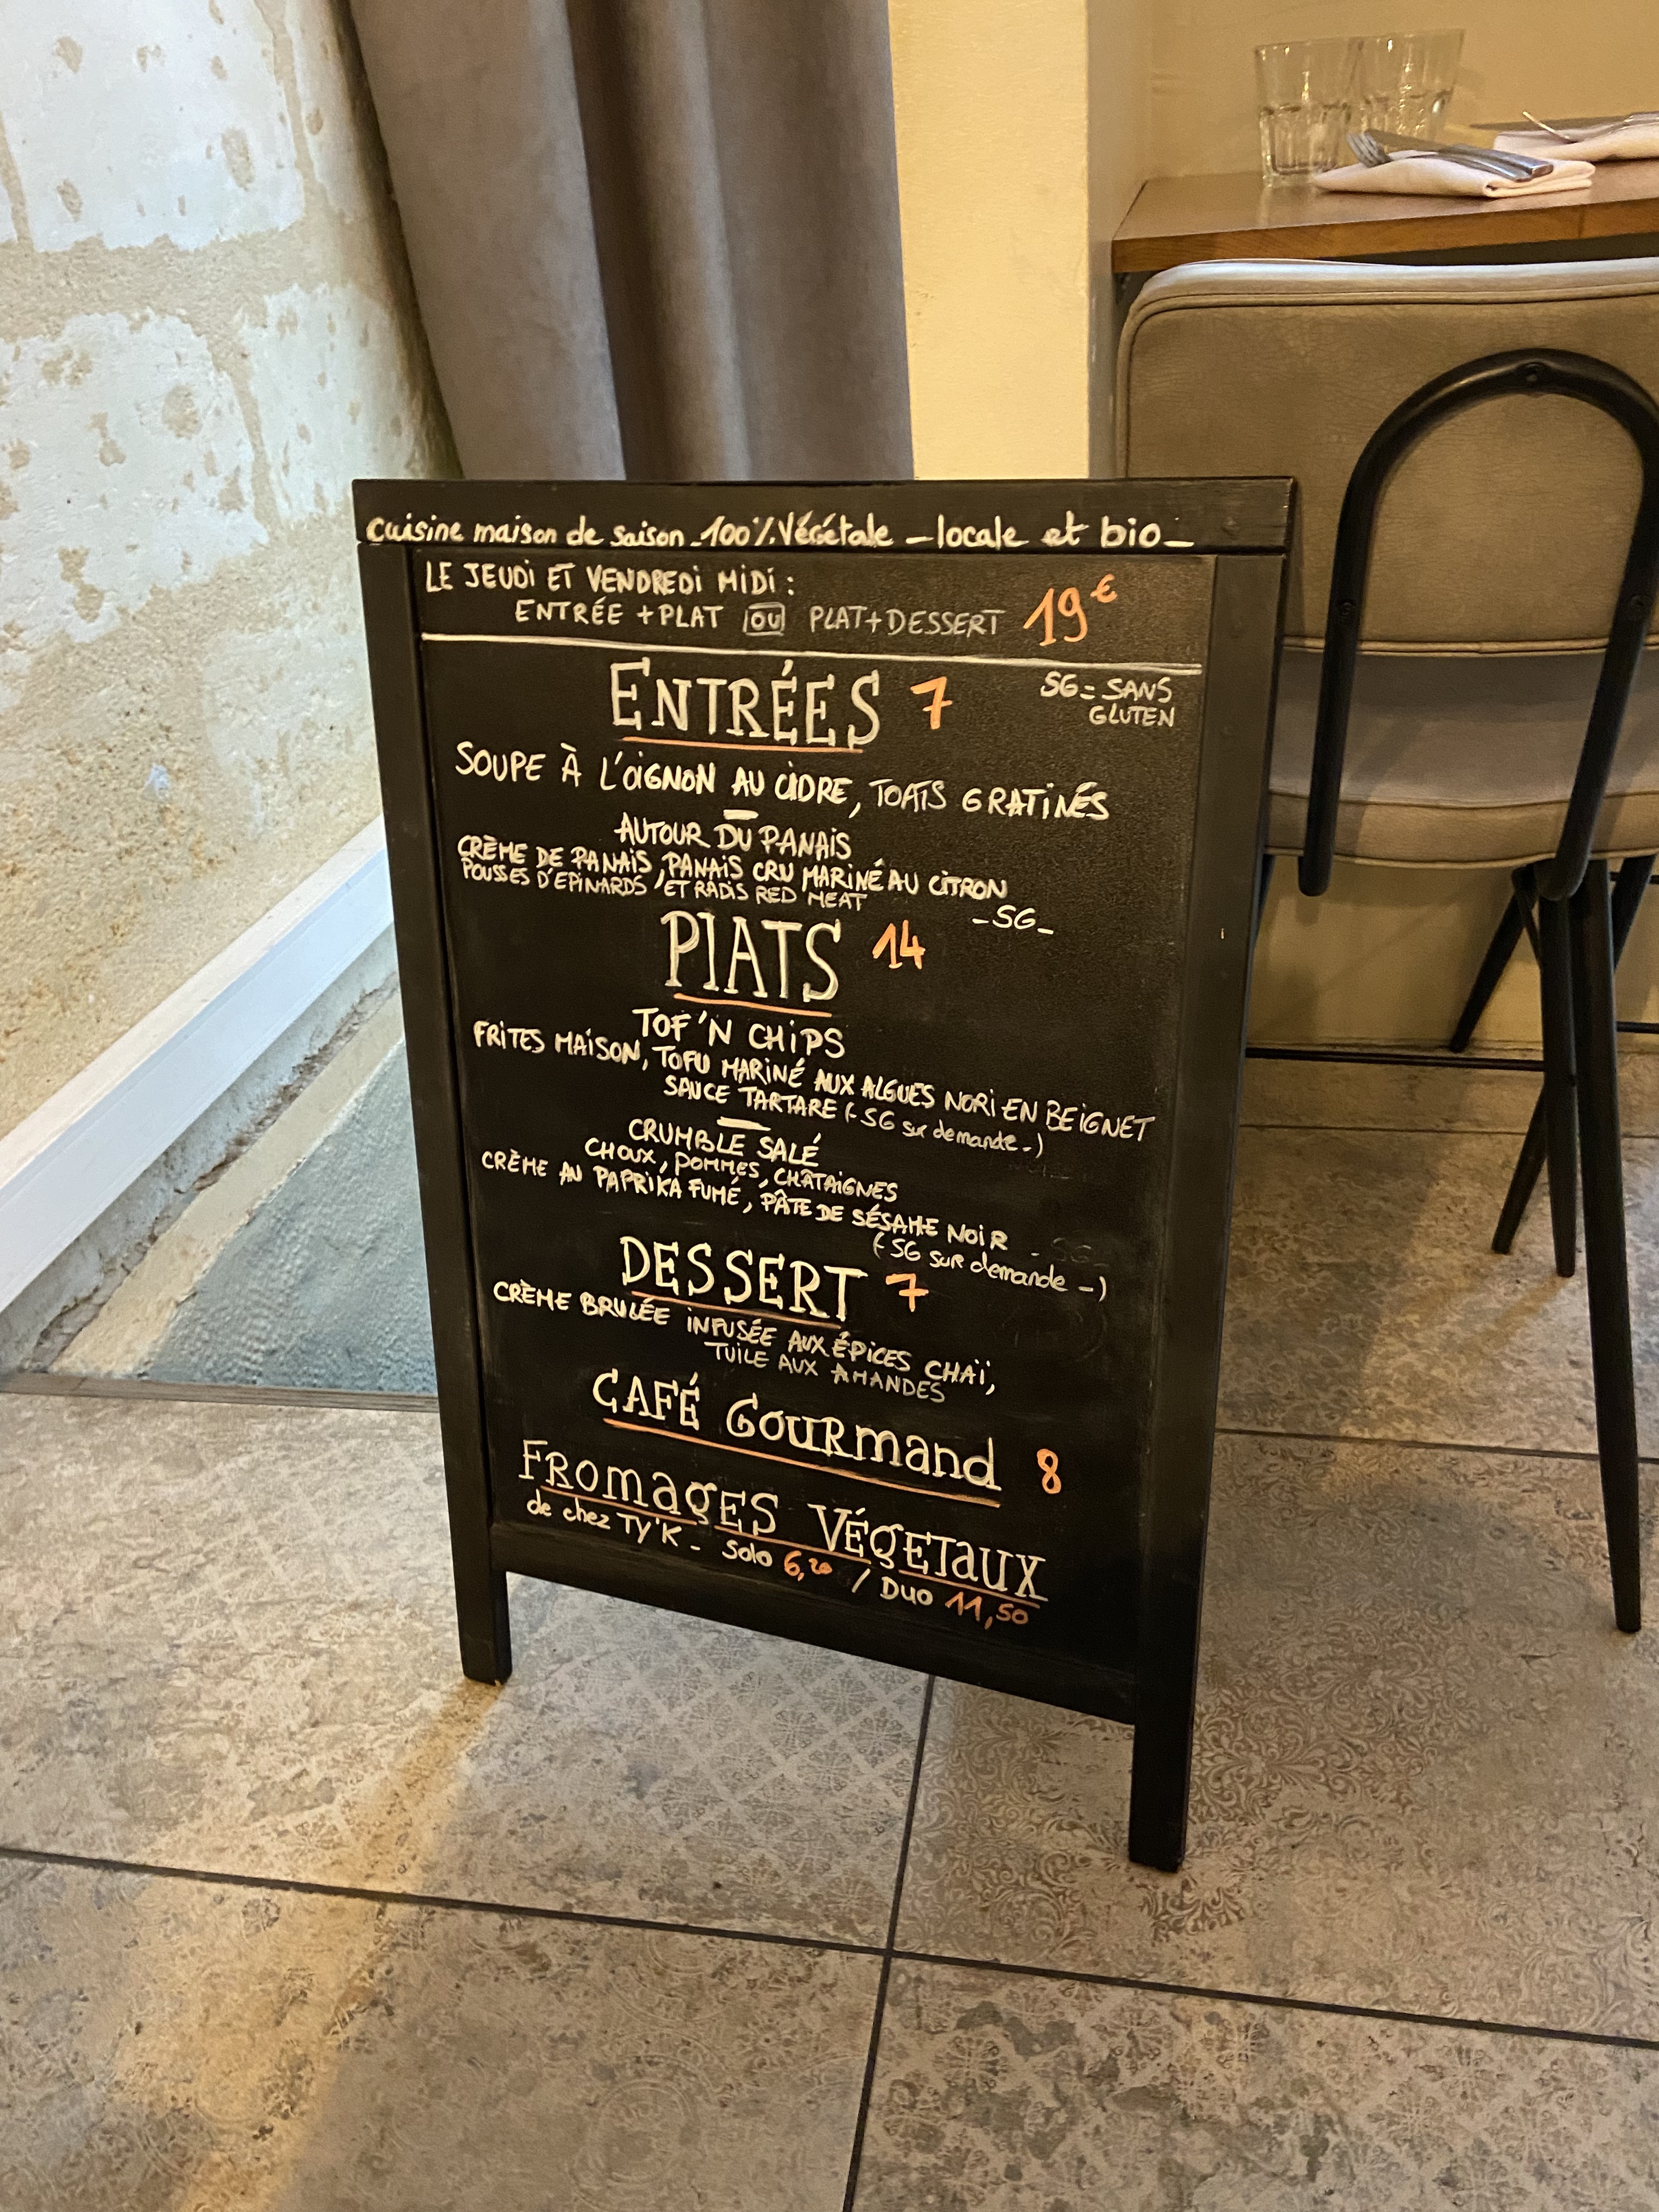 cuisine maison de saison _100% Végétale _ locale et bio _
LE JEUDI ET VENDREDI MIDI :
ENTRÉE + PLAT OU PLAT + DESSERT 19€
ENTRÉES 7
SG = SANS
GLUTEN
SOUPE À L'OIGNON AU CIDRE, TOATS GRATINÉS
AUTOUR DU PANAIS
CRÈME DE PANAIS, PANAIS CRU MARINÉ AU CITRON
POUSSES D'EPINARDS ET RADIS RED MEAT
-SG-
PLATS 14
TOF'N CHIPS
FRITES MAISON, TOFU MARINÉ AUX ALGUES NORI EN BEIGNET
SAUCE TARTARE (-SG sur demande-)
CRUMBLE SALÉ
CHOUX, POMMES, CHÂTAIGNES
CRÈME AU PAPRIKA FUMÉ, PÂTE DE SÉSAME NOIR
(-SG sur demande -)
DESSERT 7
CRÈME BRULÉE INFUSÉE AUX ÉPICES CHAÏ,
TUILE AUX AMANDES
CAFÉ GOURMAND 8
FROMAGES VÉGETAUX
de chez TY'K - Solo 6,20 / DUO 11,50